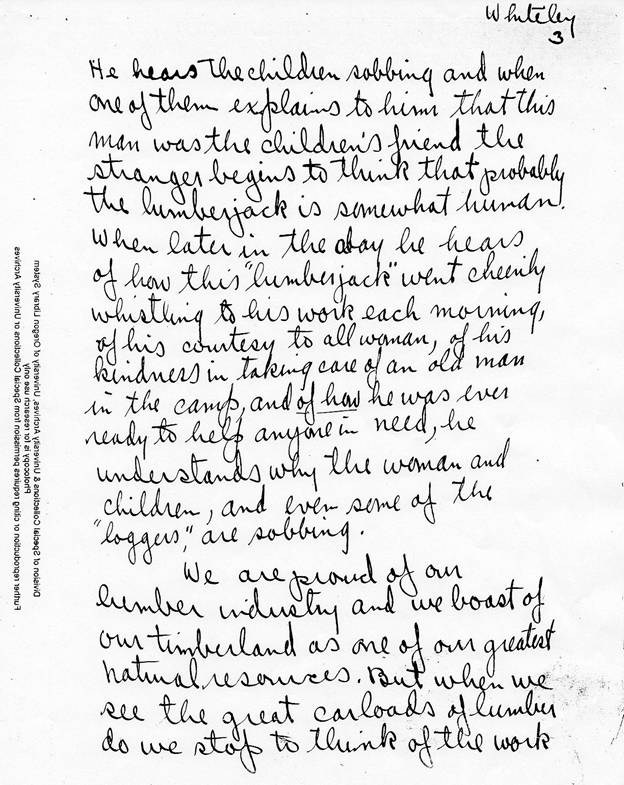 Whiteley
3
He hears the children sobbing and when
one of them explains to him that this
man was the children's friend the
stranger begins to think that probably
the lumberjack is somewhat human.
When later in the day he hears
of how this "lumberjack" went cheerily
whistling to his work each morning,
of his courtesy to all woman, of his
kindness in taking care of an old man
in the camp, and of how he was ever
ready to help anyone in need, he
understands why the woman and
children, and even some of the
"loggers," are sobbing.
We are proud of our
lumber industry and we boast of
our timberland as one of our greatest
natural resources. But when we
see the great carloads of lumber
do we stop to think of the work
Division of Special Collections & University Archives, University of Oregon Library System
Photocopy is for research use only
Further reproduction or citing requires permission from Special Collections or University Archives